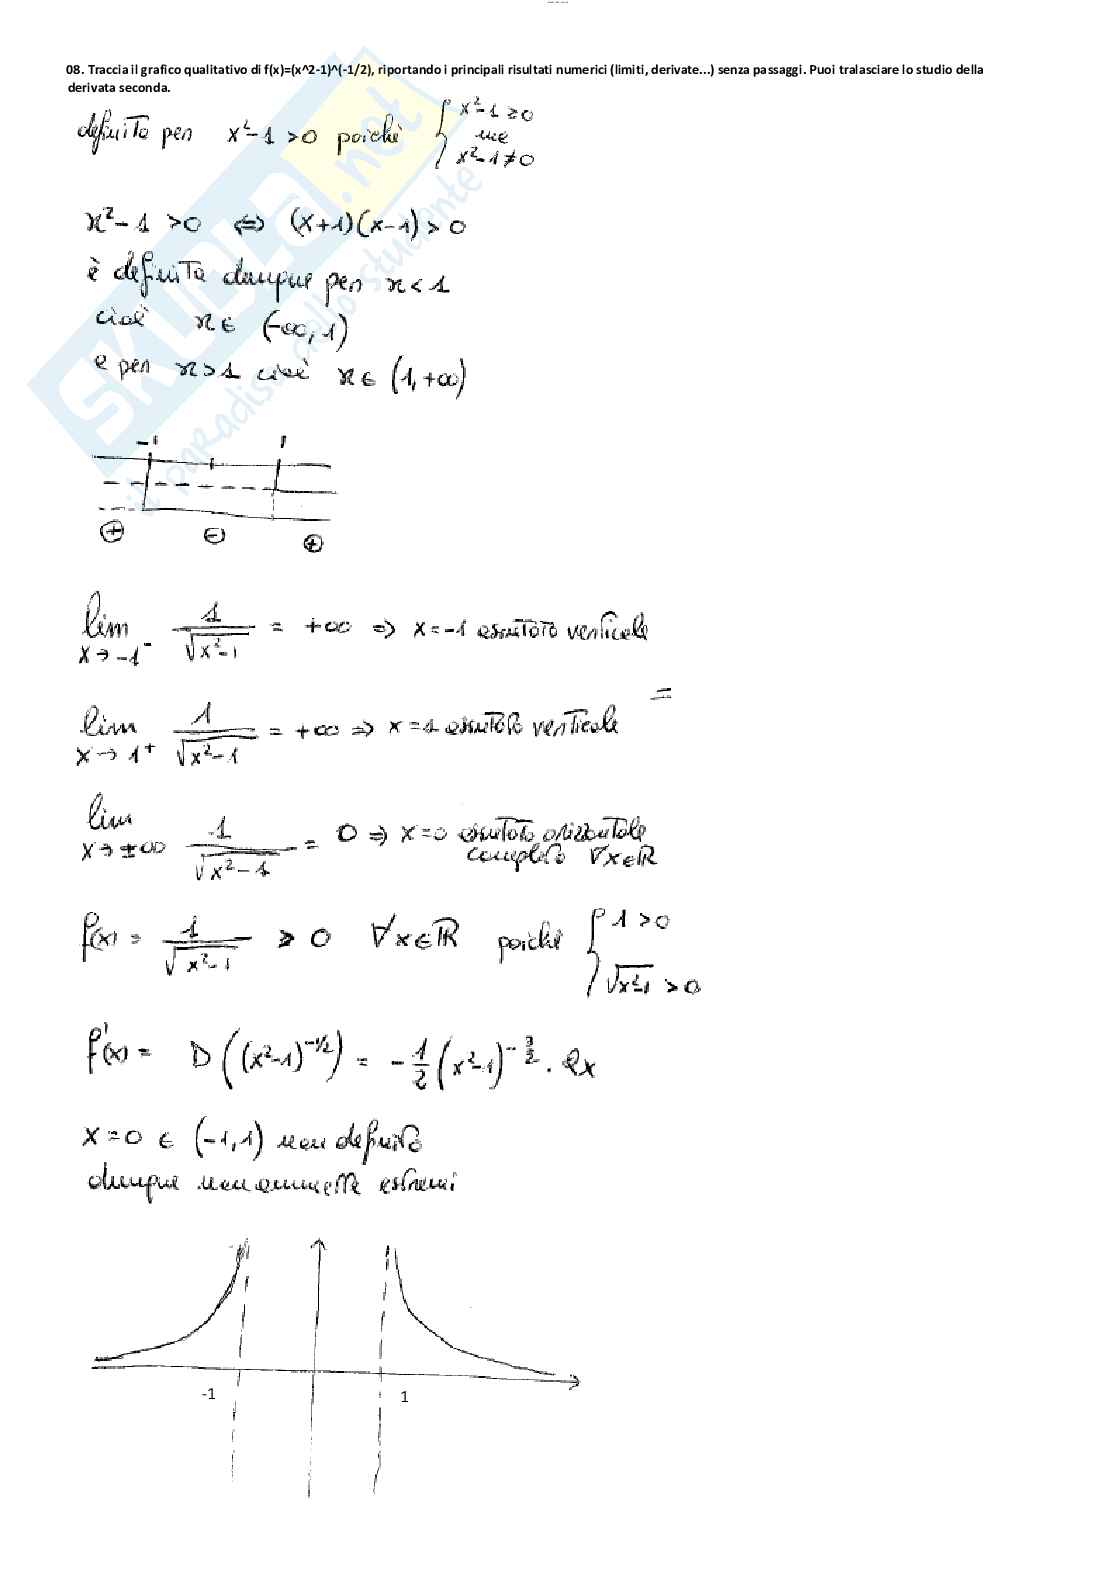 08. Traccia il grafico qualitativo di f(x)=(x^2-1)^(-1/2), riportando i principali risultati numerici (limiti, derivate...) senza passaggi. Puoi tralasciare lo studio della
derivata seconda.
definita per x²-1 >0 poichè { x²-1 ≥0
ma
x²-1≠0
x²-1 >0 ⇔ (x+1)(x-1) > 0
è definita dunque per x< 1
cioè x∈ (-∞, 1)
e per x>1 cioè x∈ (1, +∞)
-1 1
+ - +
lim x→-1⁻ 1/√(x²-1) = +∞ ⇒ x=-1 asintoto verticale
=
lim x→1⁺ 1/√(x²-1) = +∞ ⇒ x=1 asintoto verticale
lim x→±∞ 1/√(x²-1) = 0 ⇒ x=0 asintoto orizzontale
completo ∀x∈ℝ
f(x) = 1/√(x²-1) > 0 ∀x∈ℝ poichè { 1 >0
√(x²-1) > 0
f'(x) = D((x²-1)^(-1/2)) = -1/2 (x²-1)^(-3/2) · 2x
x=0 ∈ (-1,1) non definita
dunque non ammette estremi
-1 1
SKUOLA.net
il paradiso dello studente